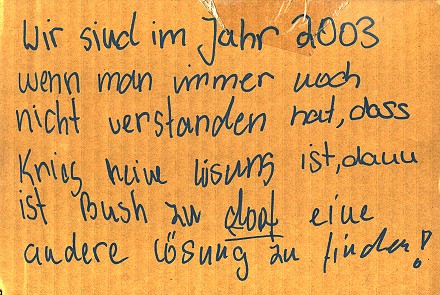 Wir sind im Jahr 2003
wenn man immer noch
nicht verstanden hat, dass
Krieg keine lösung ist, dann
ist Bush zu doof eine
andere lösung zu finden!